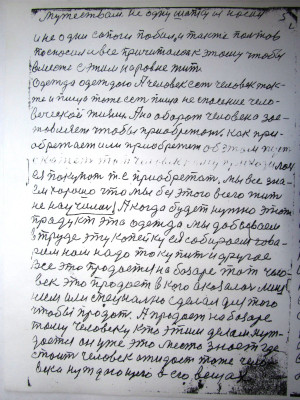 мужествам не одну шапку и носки
и не одни сапоги больщи также полтов
поскусил и все причиталок этому чтобы
вместе с этим наровне жит
Одежда одеждою А человек ест человек так-
же и пища тоже ест пища не спасение чело-
веческой жизни. А на оборот человека зос-
товляет чтобы приобретат. Как при-
обретает или приобретен об этом
человек
ся покупат т.е приобретат. Мы все зна-
ем хорошо что мы без этого всего жит
не научились А когда будет нужно этот
продукт эта одежда мы добоваем
в труде эту копейку ея собираем гова-
рим нам надо то купит и другое
Все это продается на базаре тот чело-
век это продает в кого оказалос лиш-
нием или специално сделал для того
чтобы продат. А продает на базаре
тому человеку кто этим делам нуж-
доется он уже это место знает где
стоит человек ожидает тоже чело-
века нуждающиго в его вещах